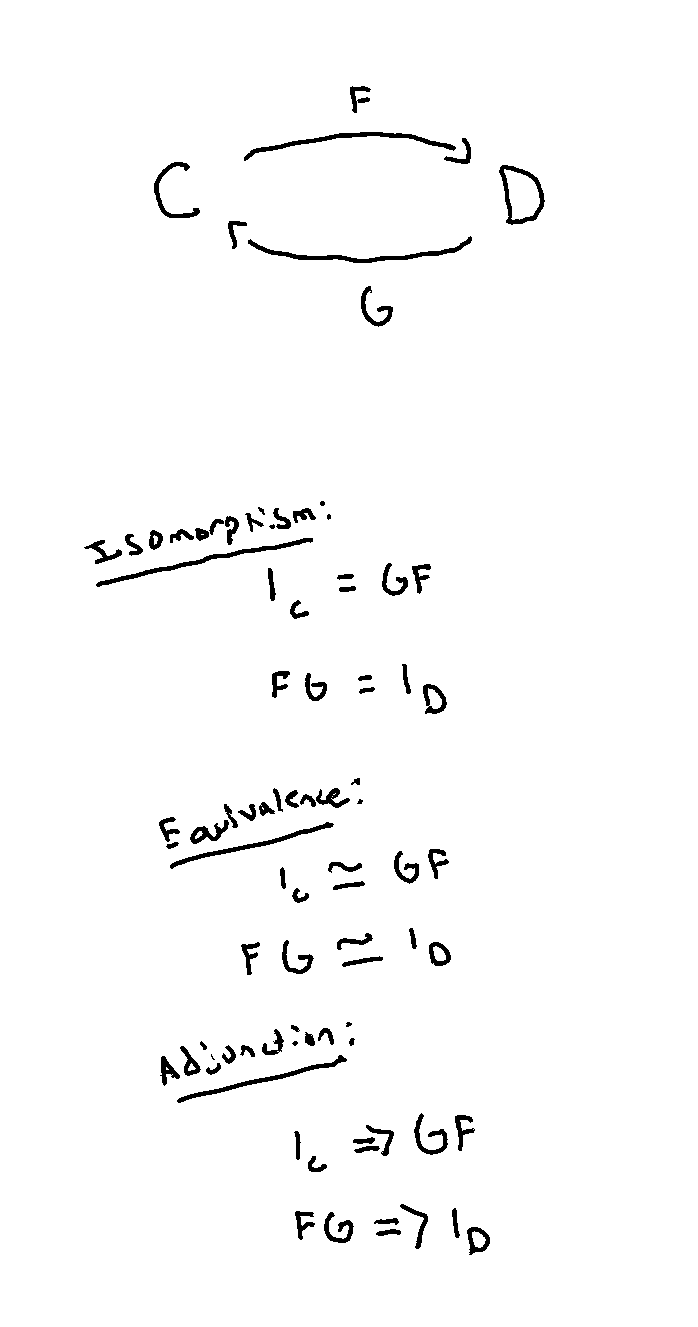 F
C D
G
Isomorphism:
1_C = GF
FG = 1_D
Equivalence:
1_C ≃ GF
FG ≃ 1_D
Adjunction:
1_C => GF
FG => 1_D